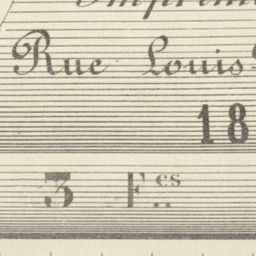 Rue Louis
18
3 F.cs